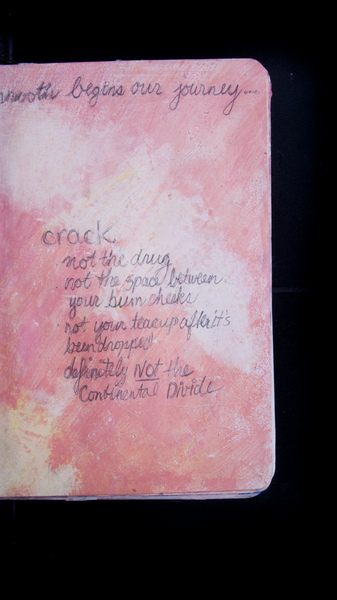 begins our journey...
crack
. not the drug
. not the space between
your bum cheeks
. not your teacup after it's
been dropped
definitely Not the
Continental Divide